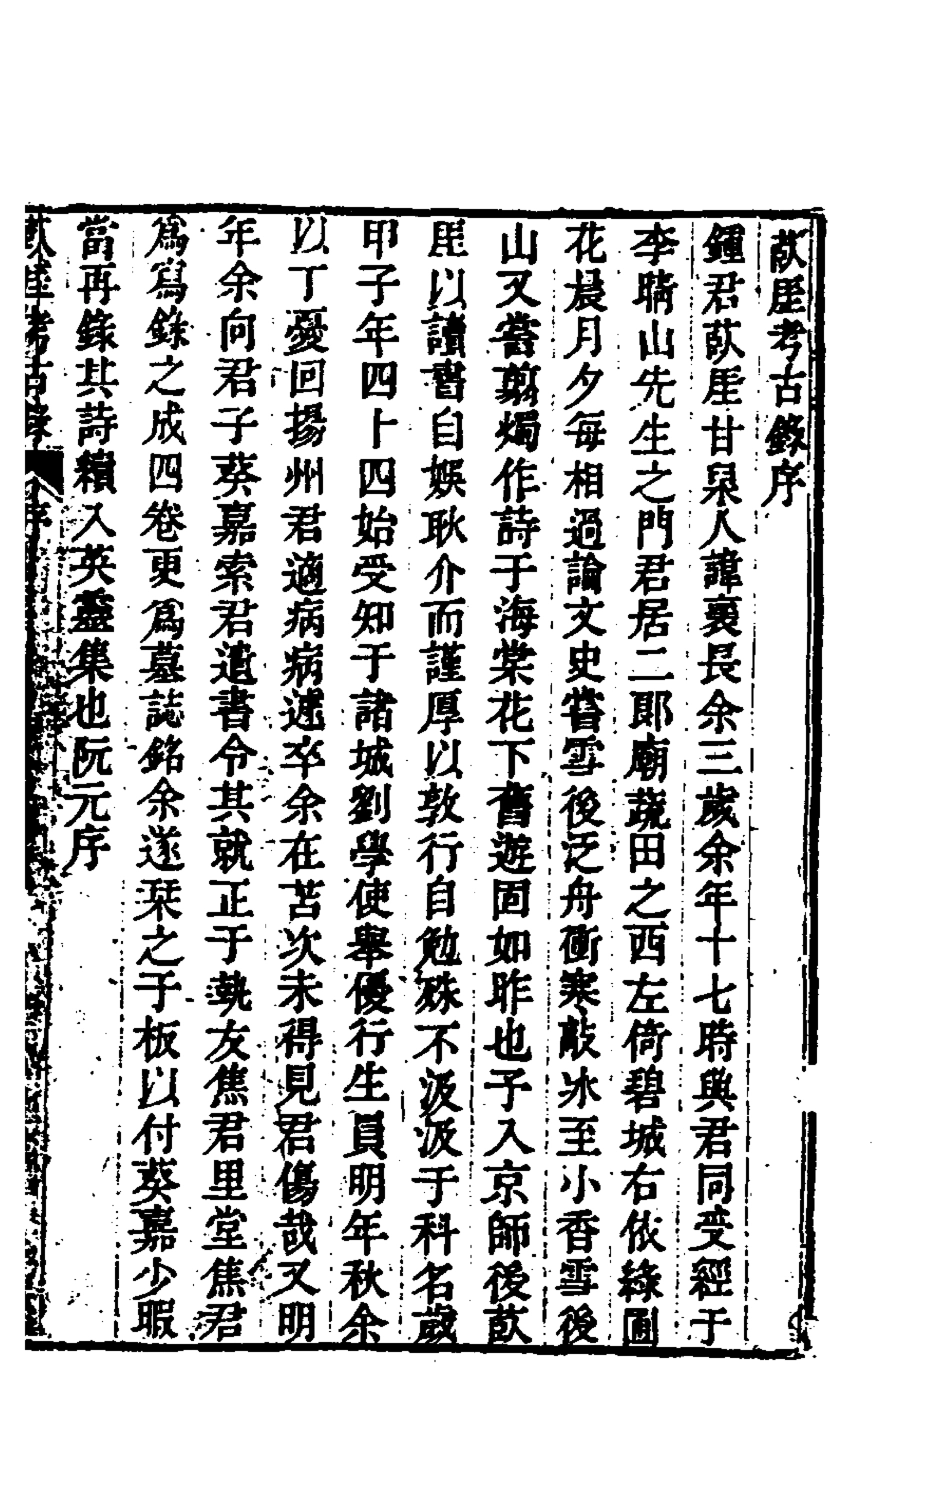 菣厓考古錄序
鍾君菣厓甘泉人諱裏長余三歲余年十七時與君同受經于
李晴山先生之門君居二郎廟蔬田之西左倚碧城右依綠圃
花晨月夕每相過論文史嘗雪後泛舟衝寒敲冰至小香雪後
山又嘗翦燭作詩于海棠花下舊遊固如昨也予入京師後菣
厓以讀書自娛耿介而謹厚以敦行自勉殊不汲汲于科名歲
甲子年四十四始受知于諸城劉學使舉優行生員明年秋余
以丁憂回揚州君適病病遽卒余在苫次未得見君傷哉又明
年余向君子葵嘉索君遺書令其就正于執友焦君里堂焦君
爲寫錄之成四卷更爲墓誌銘余遂栞之于板以付葵嘉少暇
當再錄其詩續入英靈集也阮元序
菣厓考古錄 序